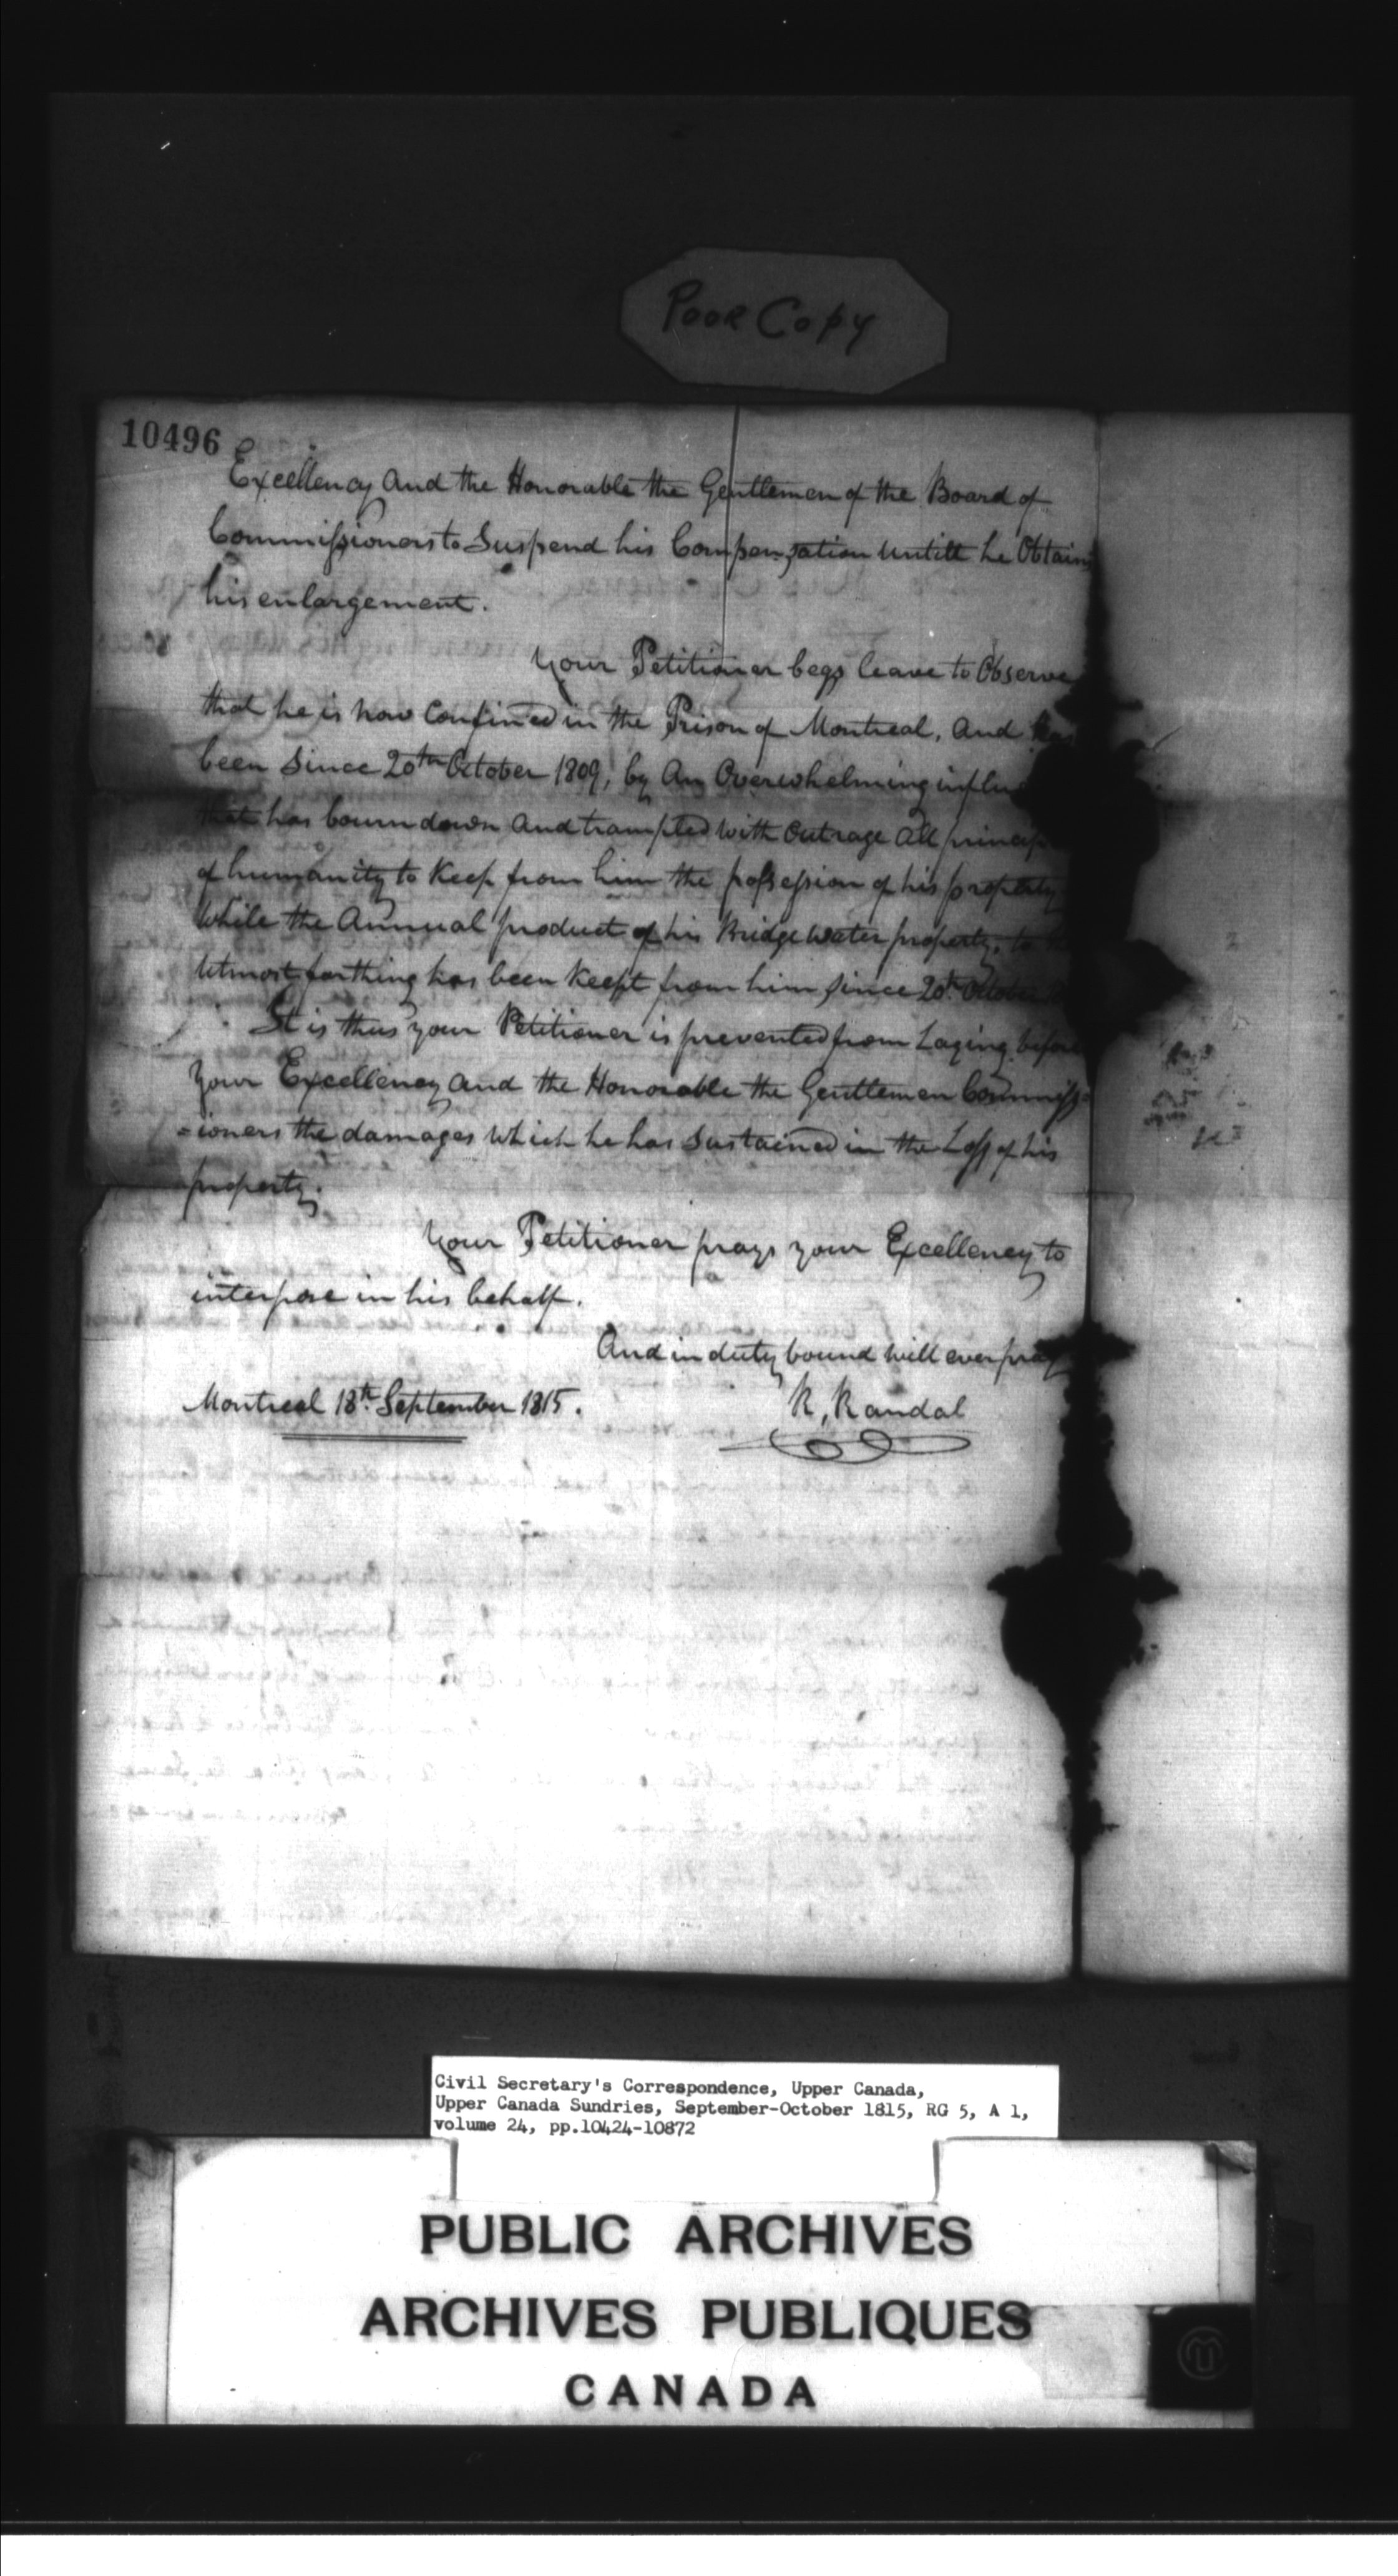 Poor Copy
10496
Excellency and the Honorable the Gentlemen of the Board of
Commissioners to Suspend his Compensation untill he Obtains
his enlargement.
Your Petitioner begs leave to Observe
that he is now Confined in the Prison of Montreal, and has
been Since 20th October 1809, by An Overwhelming influ
that has bourn down and trampled with outrage all princip
of humanity to Keep from him the possession of his property
While the Annual product of his Bridgewater property, to
Utmost farthing has been Keept from him since 20th October
It is thus your Petitioner is prevented from Laying before
Your Excellency and the Honorable the Gentlemen Commiss=
=ioners the damages which he has Sustained in the Loss of his
property.
Your Petitioner prays your Excellency to
interpose in his behalf.
And in duty bound will ever pray
Montreal 18th September 1815.
R, Randal
Civil Secretary's Correspondence, Upper Canada,
Upper Canada Sundries, September-October 1815, RG 5, A 1,
volume 24, pp.10424-10872
PUBLIC ARCHIVES
ARCHIVES PUBLIQUES
CANADA